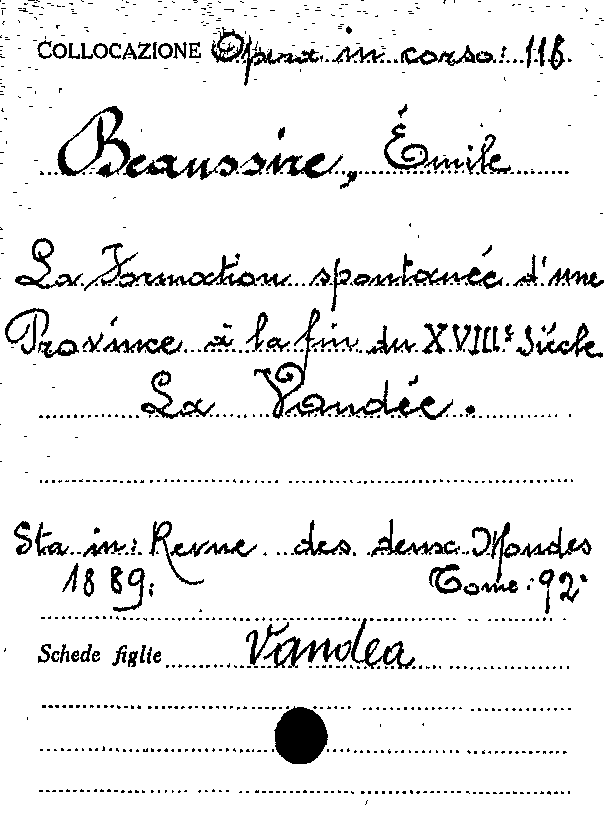 COLLOCAZIONE Opera in corso: 116.
Beaussire, Émile
La Formation spontanée d'une
Province à la fin du XVIIIe Siècle
La Vandée.
Sta in: Revue des deux Mondes
1889. Tome: 92°
Schede figlie Vandea